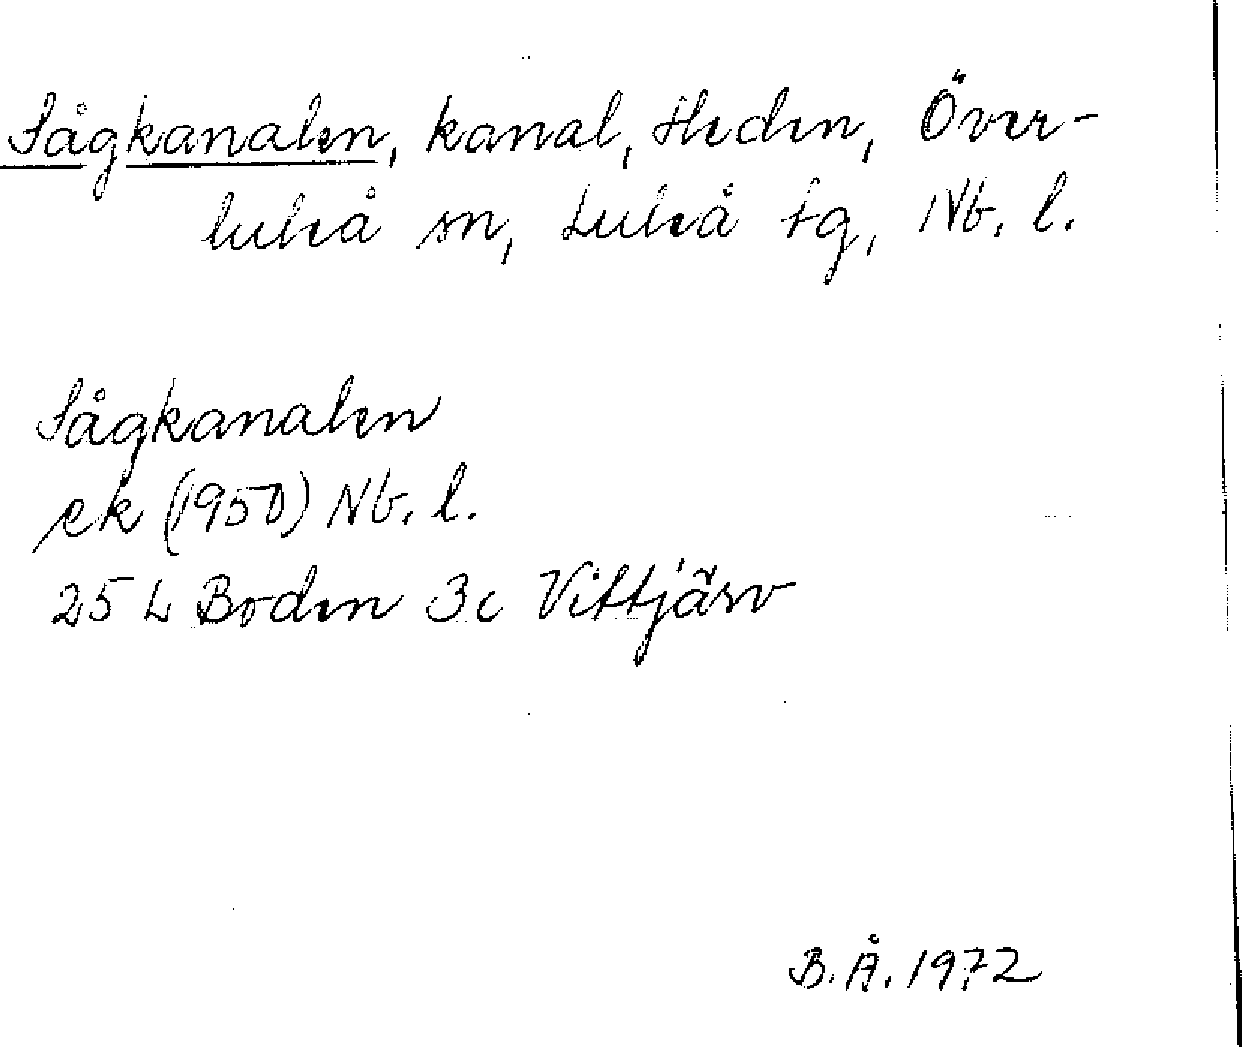 Sågkanalen, kanal, Heden, Över-
luleå sn, Luleå tg, Nb. l.
Sågkanalen
ek (1950) Nb. l.
25 L Boden 3c Vittjärv
B.Å. 1972